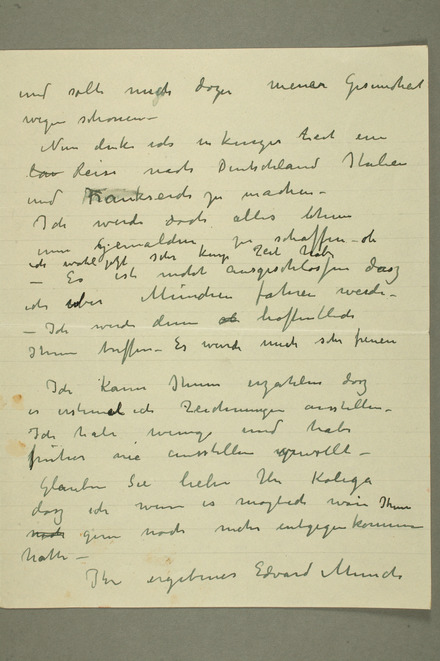 und sollte mich dazu meiner Gesundheit
wegen schonen –
Nun denke ich in kurzer Zeit eine
Reise nach Deutschland Italien
und Frankreich zu machen –
Ich werde doch alles thun
um Gemälden zu schaffen – ob
ich wohl jetzt sehr kurze Zeit habe
– Es ist nicht ausgeschlossen dasz
ich über München fahren werde –
– Ich werde dann hoffentlich
Ihnen treffen – Es würde mich sehr freuen
Ich kann Ihnen erzählen dasz
ich Zeichnungen ausstellen –
Ich habe wenige und habe
früher nie ausstellen gewollt –
Glauben Sie lieber Herr Kollega
dasz ich wenn es möglich wäre Ihnen
gern noch mehr entgegenkommen
hatte –
Ihr ergebener Edvard Munch